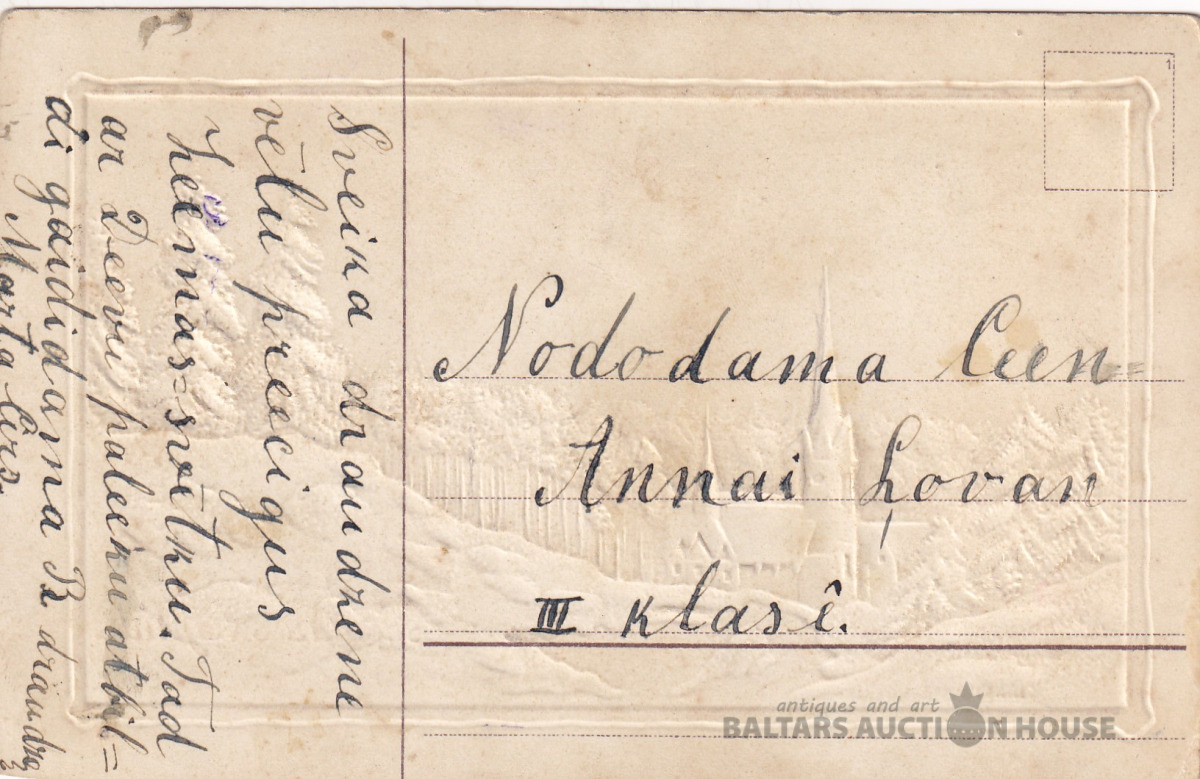 Sveika draudzene
vēlu preecigus
Zeemas=svētku. Tad
ar Deevu palieku atbil=
di gaididama B draudze
Marta Cirs.
Nododama Ceen=
Annai Ļovan
III klasê.
1
antiques and art
BALTARS AUCTION HOUSE